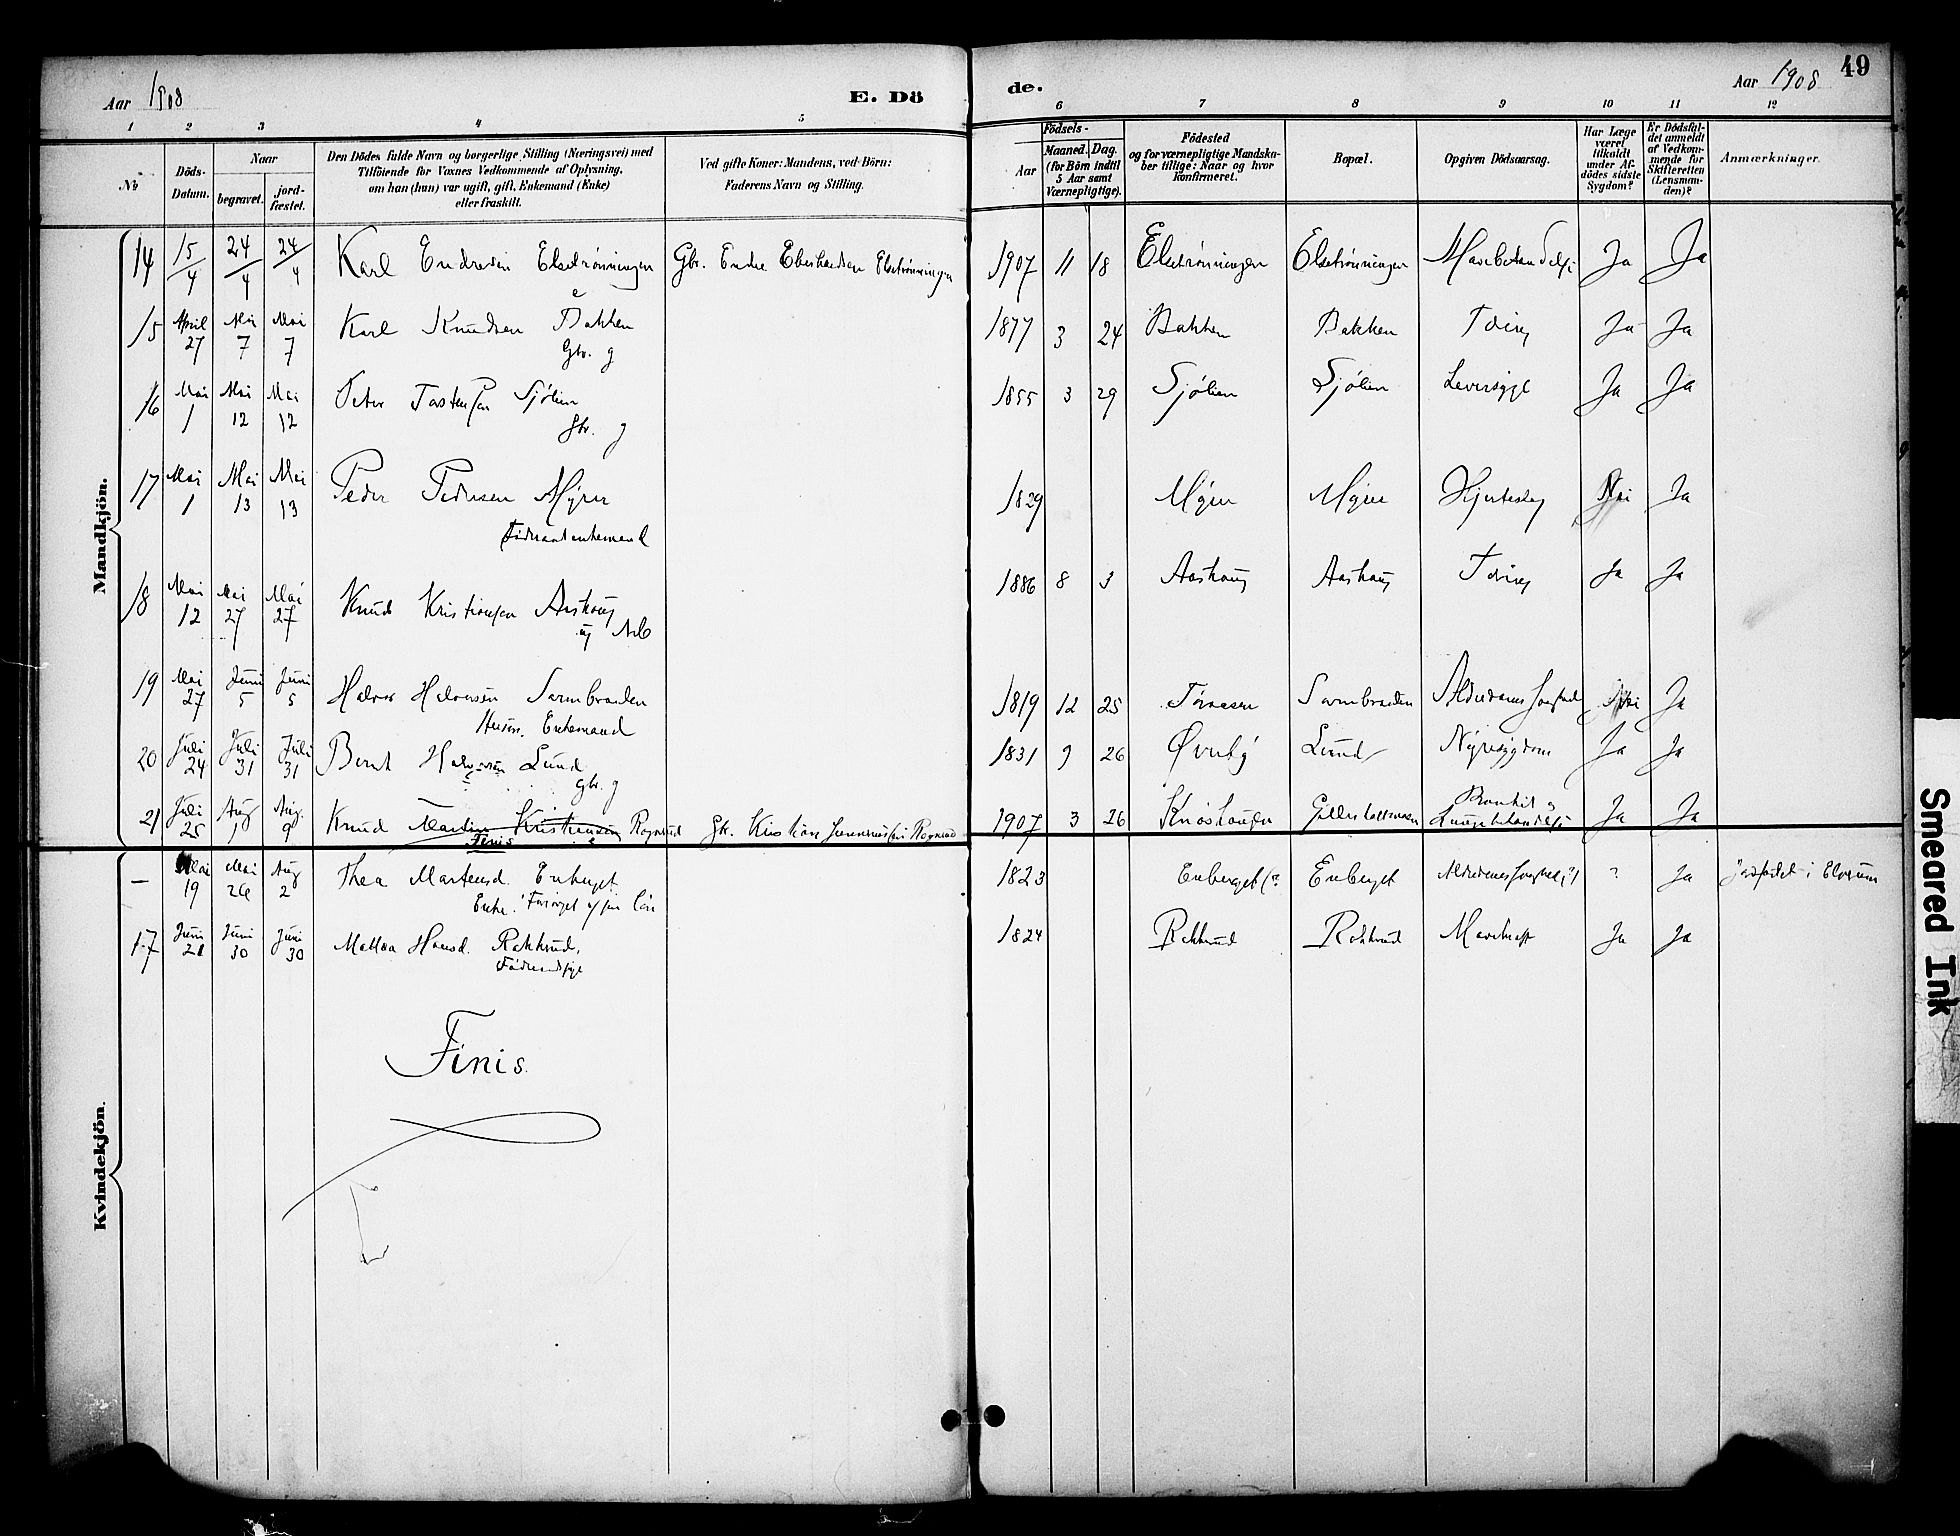 49
Aar 1908
E. Dö
de.
Aar 1908
1 2 3 4 5 6 7 8 9 10 11 12
No
Döds-Datum.
Naar
begravet.
jord-fæstet.
Den Dödes fulde Navn og borgerlige Stilling (Næringsvei) med
Tilföiende for Voxnes Vedkommende af Oplysning,
om han (hun) var ugift, gift, Enkemand (Enke)
eller fraskilt.
Ved gifte Koner: Mandens, ved Börn:
Faderens Navn og Stilling.
Födsels-
Aar
Maaned. Dag.
(for Börn indtil
5 Aar samt
Værnepligtige).
Födested
og for værnepligtige Mandska-
ber tillige: Naar og hvor
konfirmeret.
Bopæl.
Opgiven Dödsaarsag.
Har Læge
været
tilkaldt
under Af-
dödes sidste
Sygdom?
Er Dödsfal-
det anmeldt
af Vedkom-
mende for
Skifteretten
(Lensman-
den)?
Anmærkninger.
Mandkjön.
14 15/4 24/4 24/4 Karl Endresen Elsetrønningen Gbr. Endre Elsetrønningen 1907 11 18 Elsetrønningen Elsetrønningen Ja Ja
15 April 27 Mai 7 Mai 7 Karl Knudsen Bakken 1877 3 24 Bakken Bakken Tæring Ja Ja
Gbr. g
16 Mai 1 Mai 12 Mai 12 Peter Tostensen Sjølien 1855 3 29 Sjølien Sjølien Leversyge Ja Ja
Gbr. g
17 Mai 1 Mai 13 Mai 13 Peder Pedersen Myrer 1829 Myrer Myrer Hjerteslag Nei Ja
18 Mai 12 Mai 27 Mai 27 Knud Kristiansen Aashaug 1886 8 3 Aashaug Aashaug Tæring Ja Ja
ug Arb
19 Mai 27 Juni 5 Juni 5 Halvor Halvorsen Sormbraaten 1819 12 25 Sormbraaten Nei Ja
Husm. Enkemand
20 Juli 24 Juli 31 Juli 31 Bernt Halvorsen Lund 1831 9 26 Øverby Lund Nyresygdom Ja Ja
gbr. g
21 Juli 25 Aug 1 Aug. 9 Knud Martin Kristiansen Rognerud Gbr. Kristian Rognerud 1907 3 26 Knoshaugen Ja Ja
Finis
Kvindekjön.
— Mai 19 Mai 26 Aug 2 Thea Martensd. Enberget 1823 Enberget (? Enberget ? Ja jordfæstet i Elverum
Enke. Forsørget af sin Søn
17 Juni 21 Juni 30 Juni 30 Mathea Hansd. Rakkrud, 1824 Rakkrud Rakkrud Mavekræft Ja Ja
Finis.
Smeared Ink